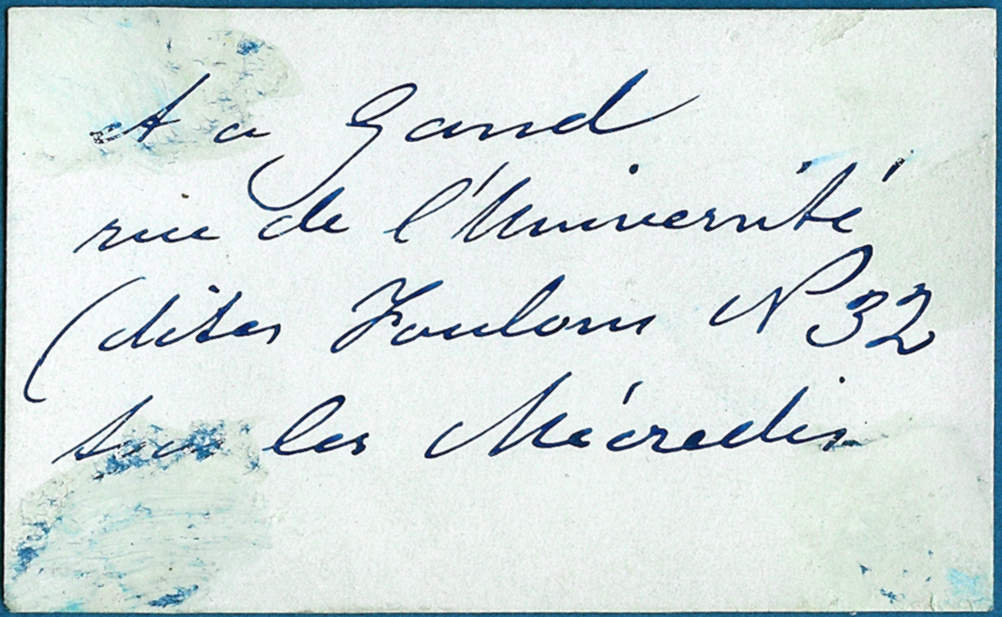 et a Gand
rue de l'Université
(dites Foulons Nº 32
tous les Mécredis